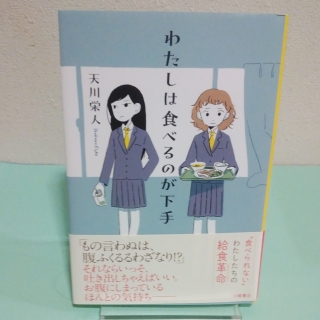 わたしは食べるのが下手
天川栄人
「もの言わぬは、
腹ふくるるわざなり!?」
それならいっそ、
吐き出しちゃえばいい。
お腹にしまっている
ほんとの気持ち——
"食べられない"
わたしたちの
給食革命
小峰書店